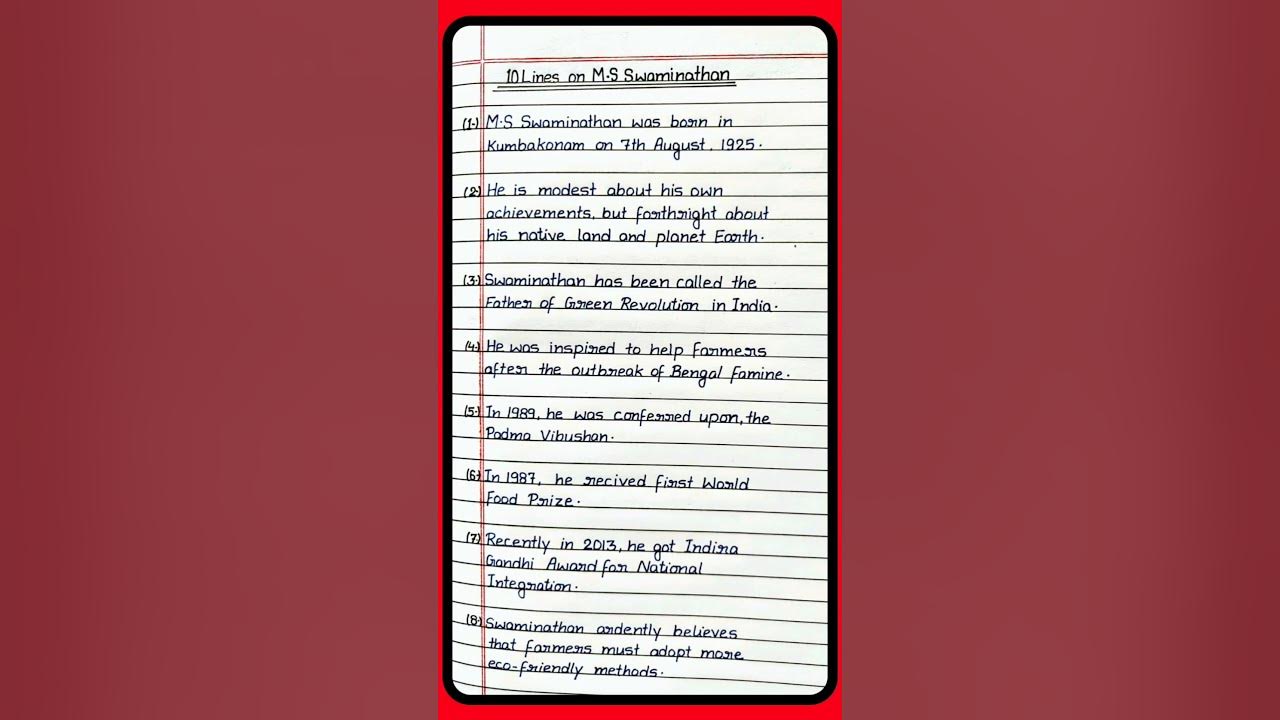 10 Lines on M.S Swaminathan
(1.) M.S Swaminathan was born in
Kumbakonam on 7th August, 1925.
(2.) He is modest about his own
achievements, but forthright about
his native land and planet Earth.
(3.) Swaminathan has been called the
Father of Green Revolution in India.
(4.) He was inspired to help farmers
after the outbreak of Bengal famine.
(5.) In 1989, he was conferred upon, the
Padma Vibushan.
(6.) In 1987, he recived first World
Food Prize.
(7.) Recently in 2013, he got Indira
Gandhi Award for National
Integration.
(8.) Swaminathan ardently believes
that farmers must adopt more
eco-friendly methods.